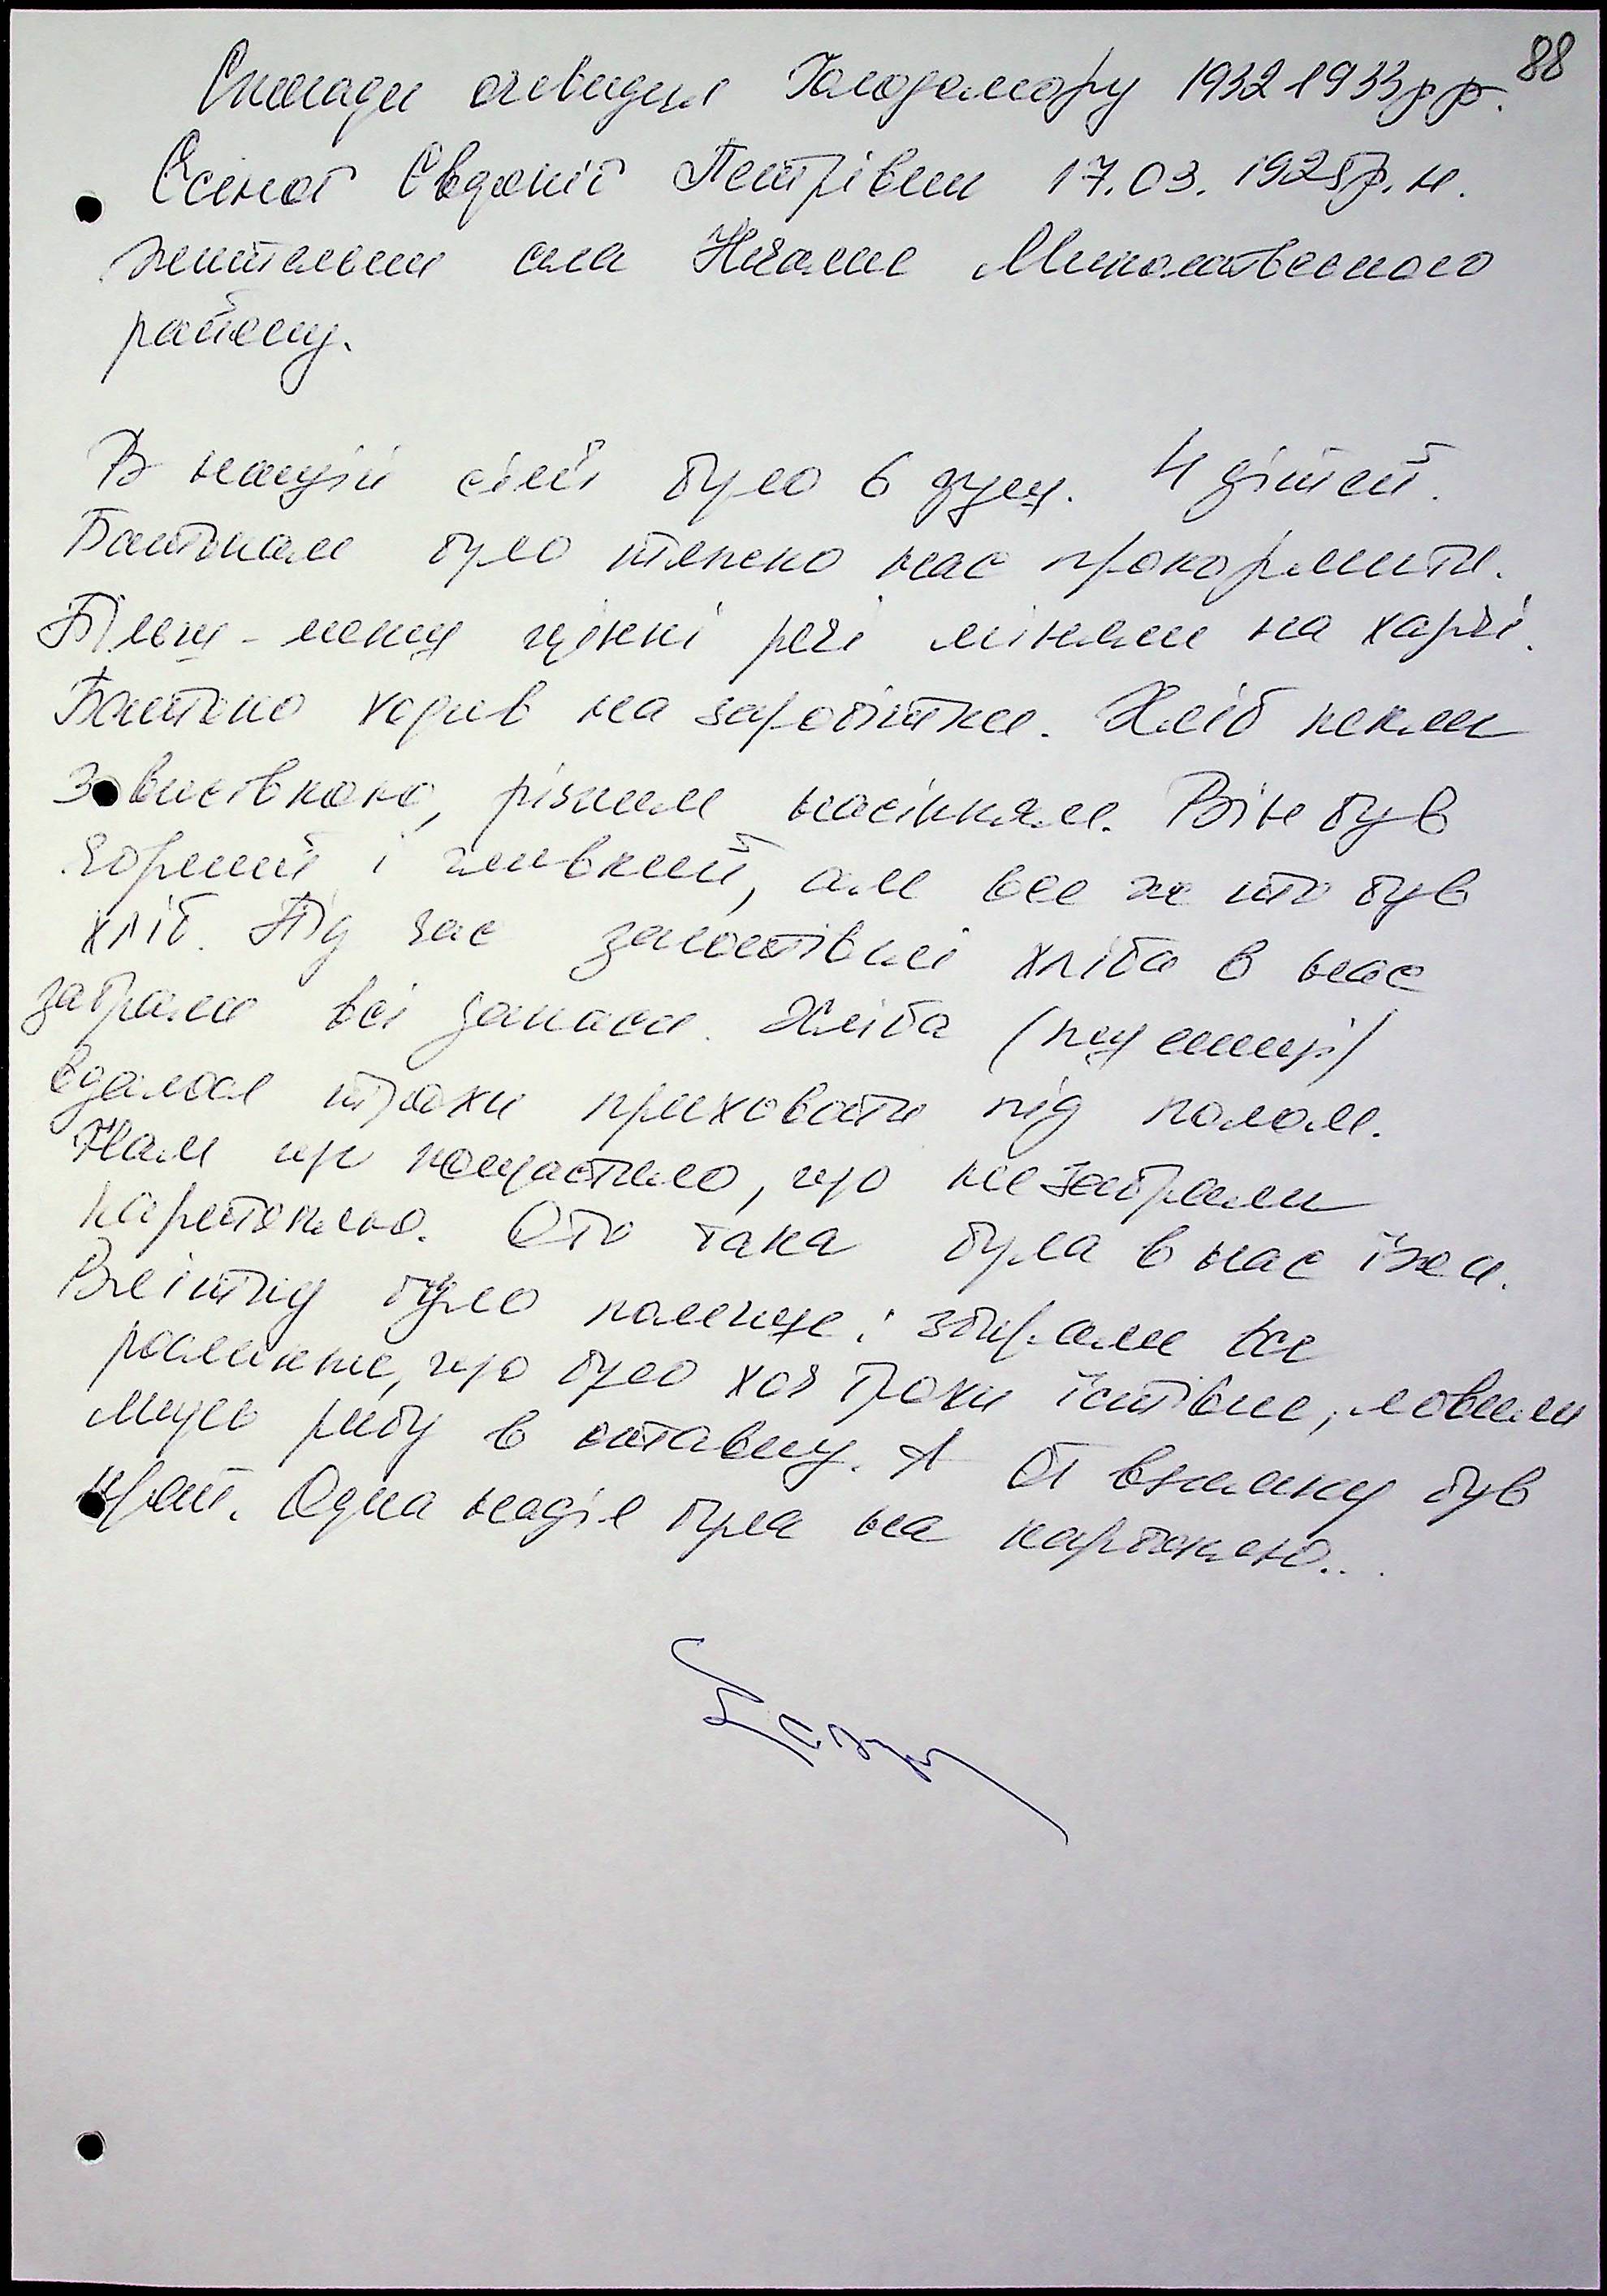 88
Спогади очевидця Голодомору 1932 1933 р р.
Євдокії Петрівни 17.03. 1925 р. н.
жительки села Нігалне Миколаївського
району.
В нашій сім'ї було 6 душ. 4 дітей.
Батькам було тяжко нас прокормити.
Більш-менш цінні речі міняли на харчі.
Батько ходив на заробітки. Хліб пекли
З висівкою, різним насінням. Він був
чорний і глевкий, але все ж то був
хліб. Під час заготівлі хліба в нас
забрали всі запаси. Хліба (пшениці)
вдалося трохи приховати під полом.
Нам ще пощастило, що не забрали
картоплю. Ото така була в нас їжа.
Влітку було полегше: збирали все
рослинне, що було хоч трохи їстівне, ловили
рибу в ставку. А от взимку був
край. Одна надія була на картоплю...